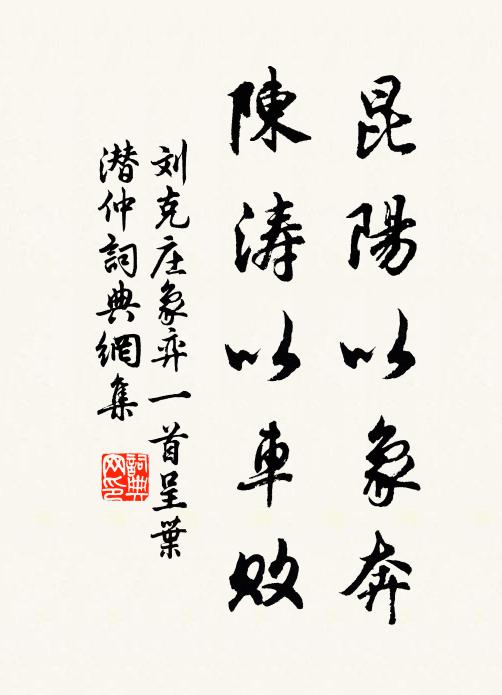 昆陽以象奔
陳濤以車敗
刘克庄象弈一首呈葉
潜仲詞典網集
詞典
网印